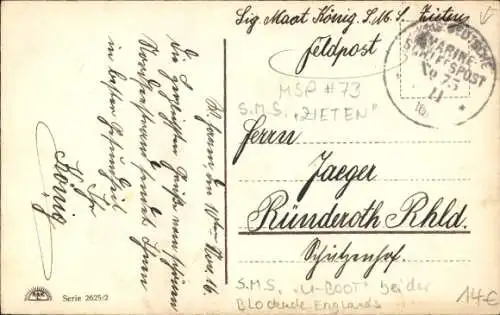 Sig Maat König. S. M. S. Zieten
Feldpost
KAIS. DEUTSCHE
MARINE-
SCHIFFSPOST
No 73
11
16
MSP #73
S.M.S. „ZIETEN"
Herrn
Jaeger
Ründeroth Rhld.
Schützenhof
S.M.S. „U-BOOT" bei der
Blockade Englands
14€
den 10ten Nov. 16.
Die herzlichsten Grüße vom schönen
Nordseestrand sendet Ihnen
in bester Gesundheit
Ihr
König
Serie 2625/2